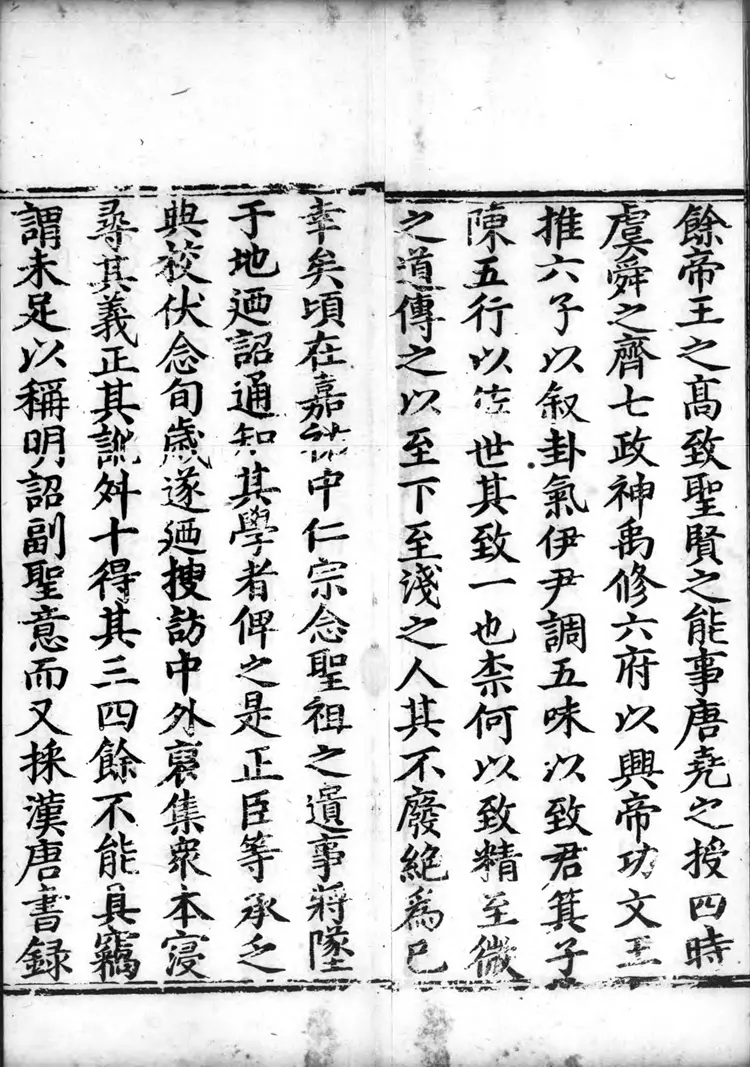 餘帝王之高致聖賢之能事唐堯之授四時
虞舜之齊七政神禹修六府以興帝功文王
推六子以叙卦氣伊尹調五味以致君箕子
陳五行以佐世其致一也柰何以致精至微
之道傳之以至下至淺之人其不廢絕爲已
幸矣頃在嘉祐中仁宗念聖祖之遺事將墜
于地廼詔通知其學者俾之是正臣等承乏
典校伏念旬歲遂廼搜訪中外裒集衆本寖
尋其義正其訛舛十得其三四餘不能具竊
謂未足以稱明詔副聖意而又採漢唐書録